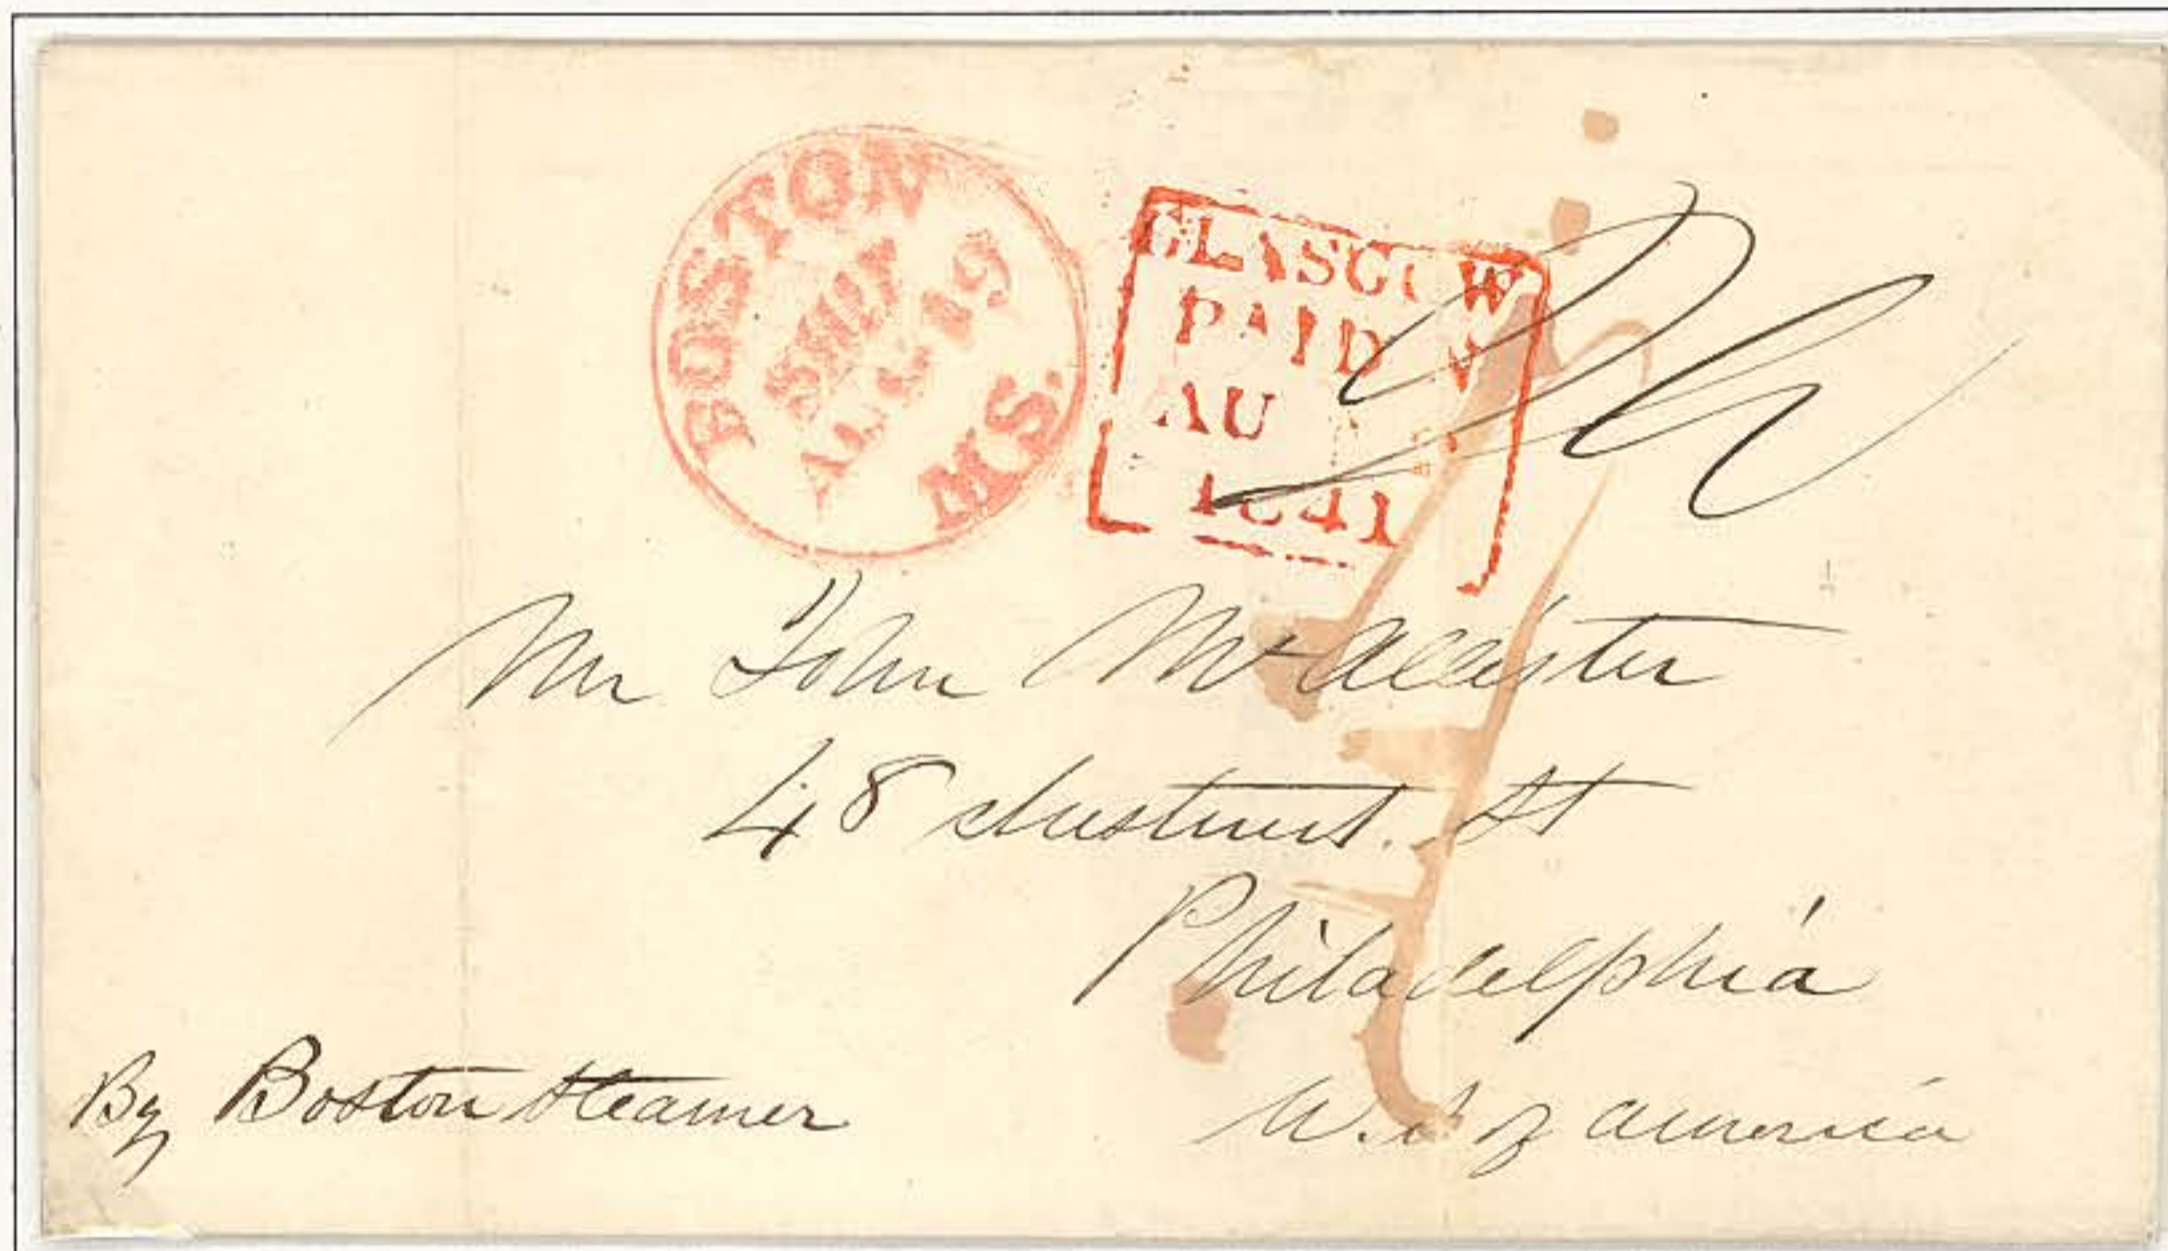 BOSTON
SHIP
AUG 19
MS.
GLASGOW
PAID
AU
1841
Mr John McAllister
48 chestnut. St
Philadelphia
of america
By Boston steamer